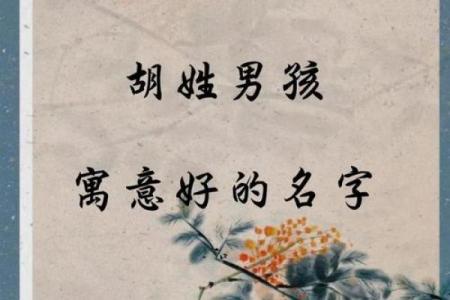 胡姓男孩
寓意好的名字